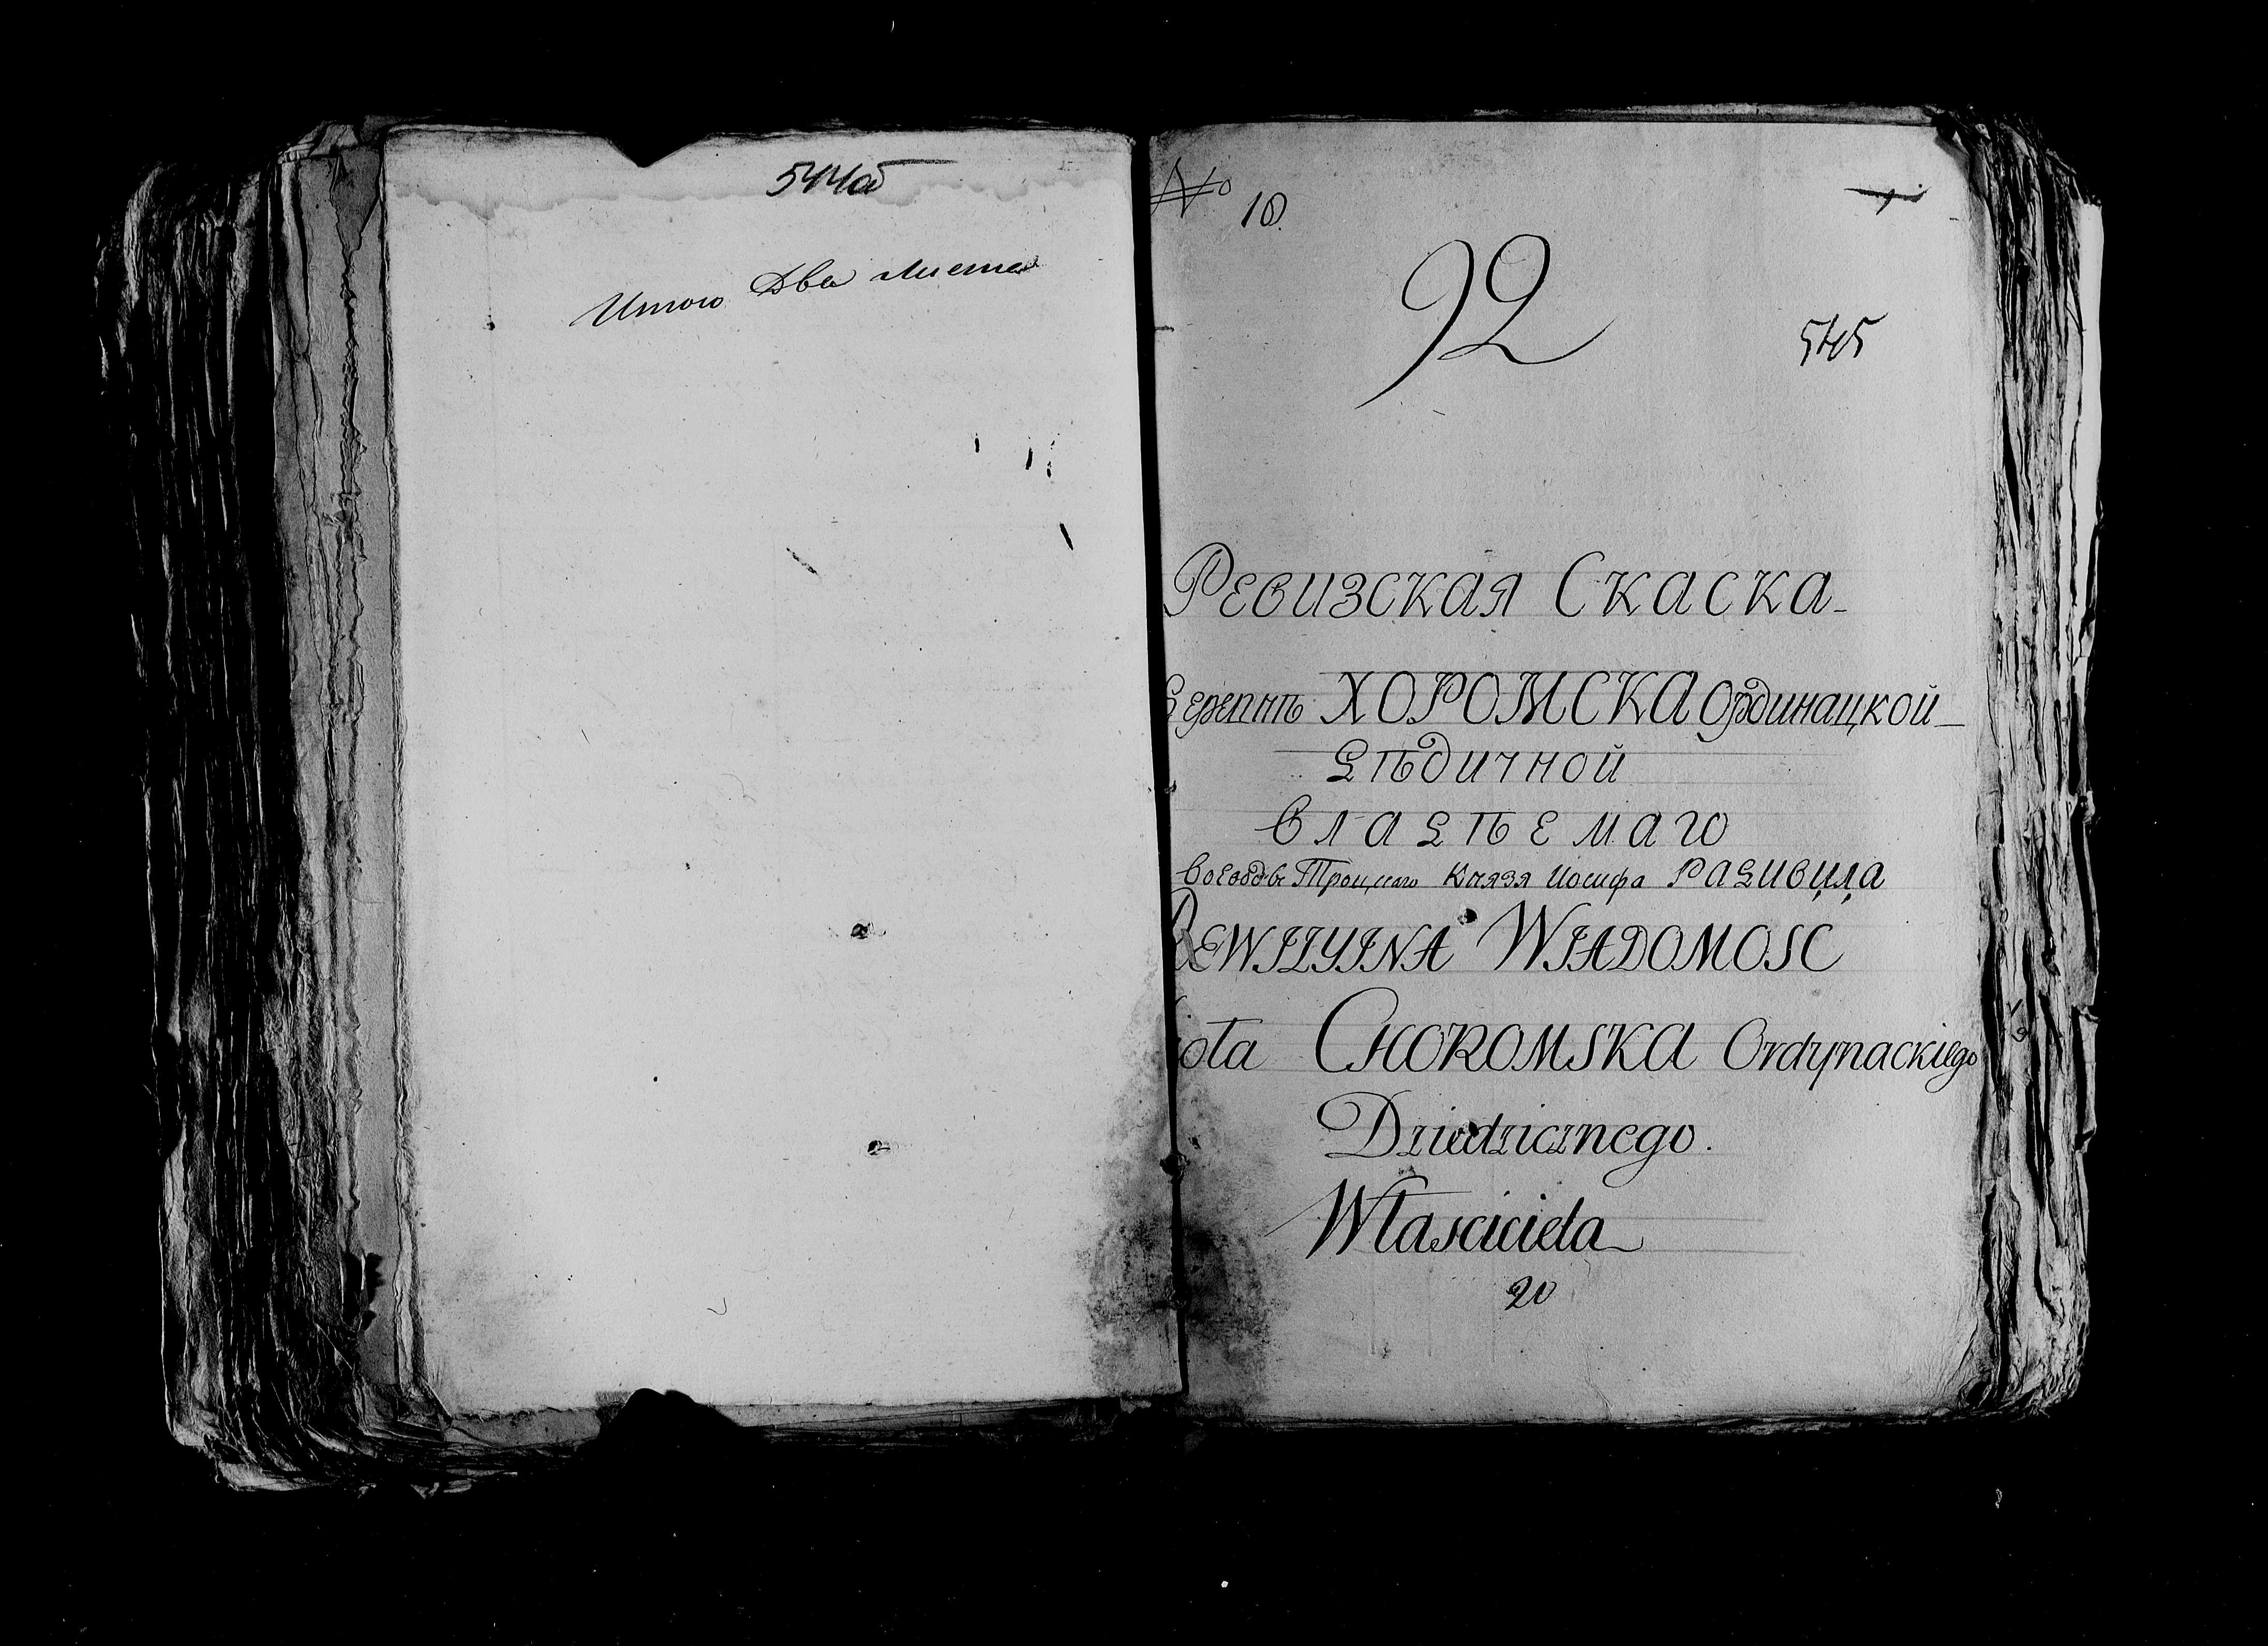 544об
Итого Два листа
№ 10.
92
545
Ревизская Скаска
Деревнѣ ХОРОМСКА Ординацкой
Дѣдичной
владѣемаго
воеводы Троцкаго Князя Иосифа РАДИВИЛА
REWIZYINA WIADOMOSC
CHOROMSKA Ordynackiego
Dziedzicznego.
Własciciela
20